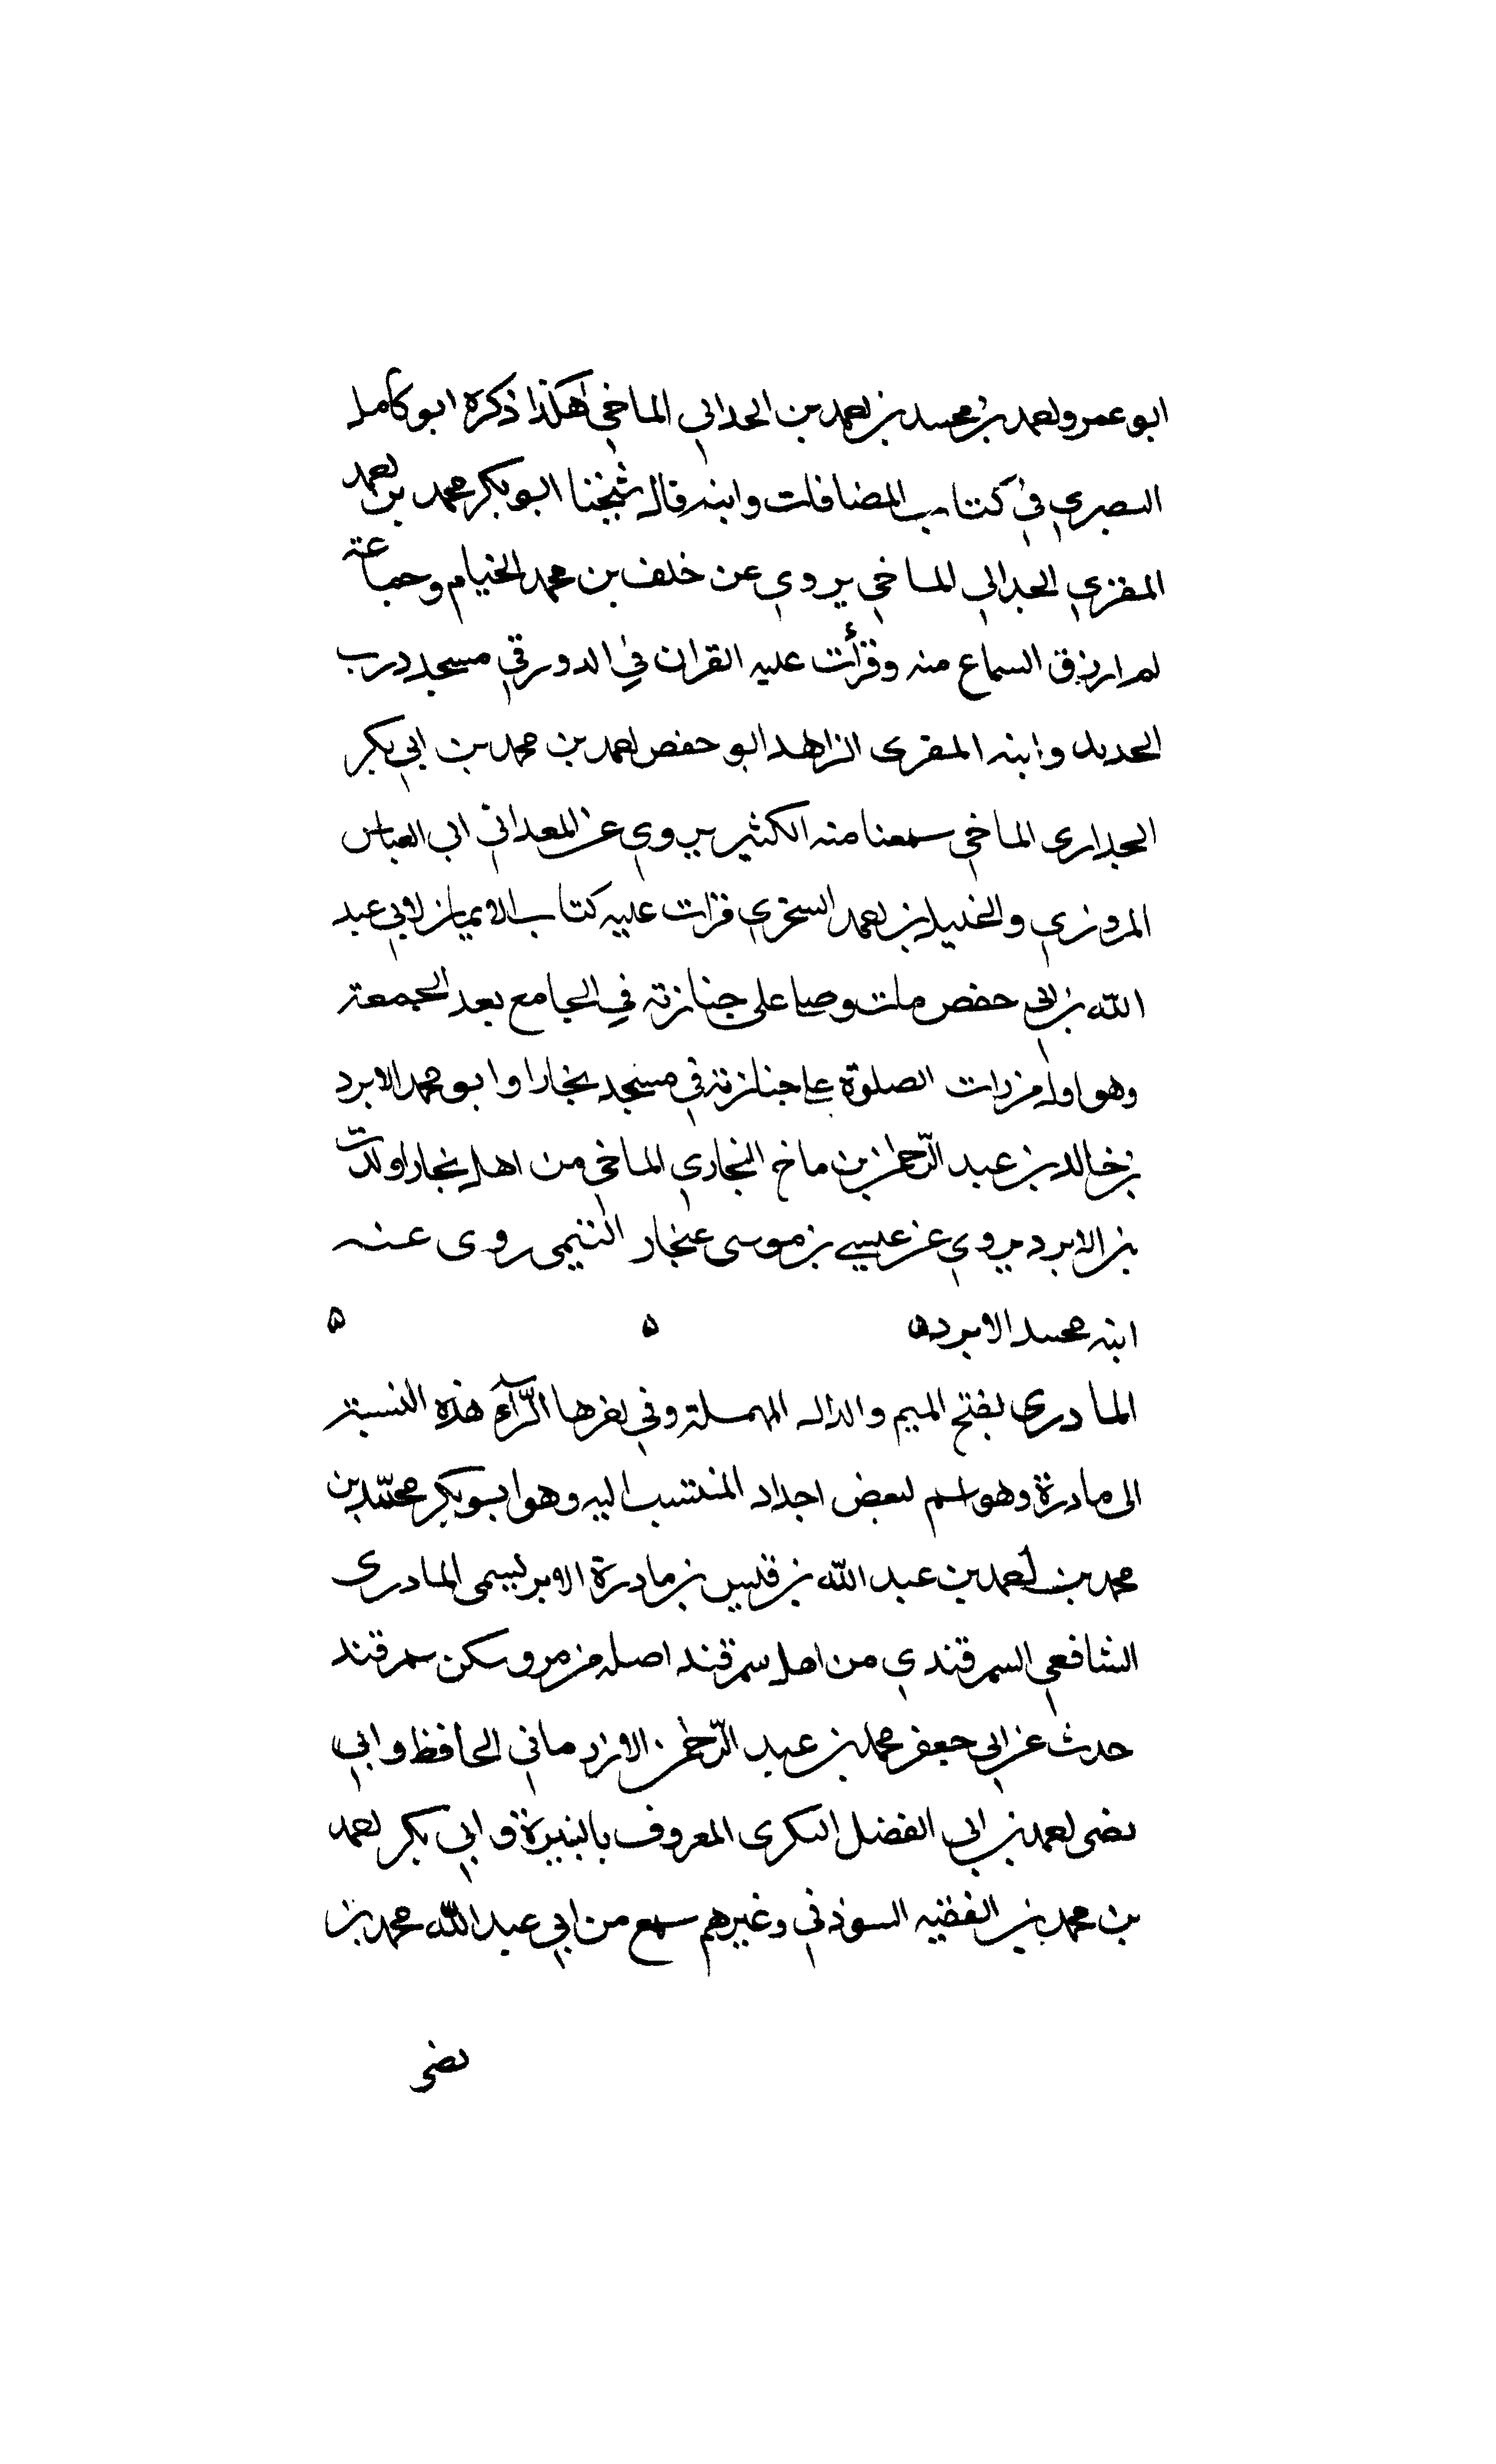 ابو عمرو احمد بن محمد بن احمد بن الحدالي الماخي هكذا ذكره ابو كامل
البصري في كتاب المضافات وابنه قال شيخنا ابو بكر محمد بن احمد
المقري الحدالي الماخي يروي عن خلف بن محمد الخيام وجماعة
لم ارزق السماع منه وقرأت عليه القران في الدورقي مسجد درب
الحديد وابنه المقرى الزاهد ابو حفص احمد بن محمد بن ابي بكر
الماخي سمعنا منه الكثير يروي عن المعداني ابي العباس
المروزي والخليل بن احمد السجزي قرات عليه كتاب الايمان لابي عبد
الله بن ابي حفص مات وصلى على جنازته في الجامع بعد الجمعة
وهو اول من رات الصلوة على جنازته في مسجد بخارا وابو محمد الابرد
بن خالد بن عبد الرّحمن بن ماخ البخاري الماخي من اهل بخارا ولدت
بن الابرد يروي عن عيسى بن موسى غنجار التيمي روى عنه
ابنه محمد الابرد ه ه ه
المادرى بفتح الميم والدال المهملة وفي اخرها الرّآء هذه النسبة
الى مادرة وهو اسم لبعض اجداد المنتسب اليه وهو ابو بكر محمّد بن
محمد بن احمد بن عبد الله بن قيس بن مادرة المادرى
الشافعي السمرقندي من اهل سمرقند اصله من مرو سكن سمرقند
حدث عن ابي جعفر محمد بن عبد الرّحمن الارزناني الحافظ وابي
نصر احمد بن ابي الفضل البكرى المعروف بالنبيرة وابي بكر احمد
بن محمد بن الفقيه السوذني وغيرهم سمع من ابي عبد الله محمد بن
نصر